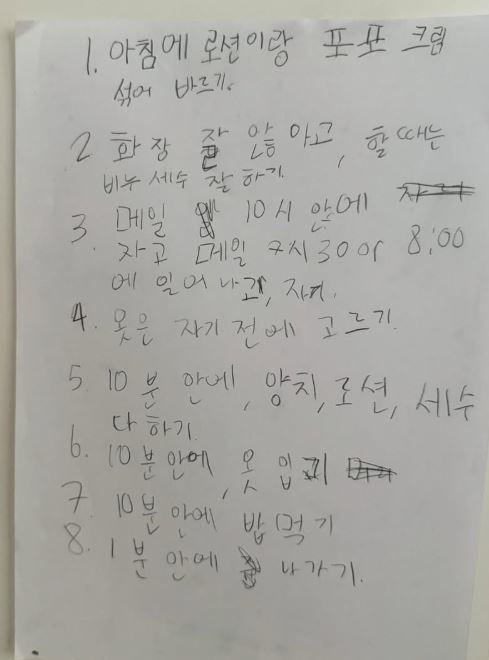 1. 아침에 로션이랑 포포 크림
섞어 바르기.
2 화장 잘 안 하고, 할 때는
비누 세수 잘 하기.
3. 메일 10시 안에
자고 메일 7시30 or 8:00
에 일어나고, 자기.
4. 옷은 자기 전에 고르기.
5. 10분 안에, 양치, 로션, 세수
다 하기.
6. 10분안에, 옷 입기
7 10분 안에 밥먹기
8. 1분 안에 나가기.